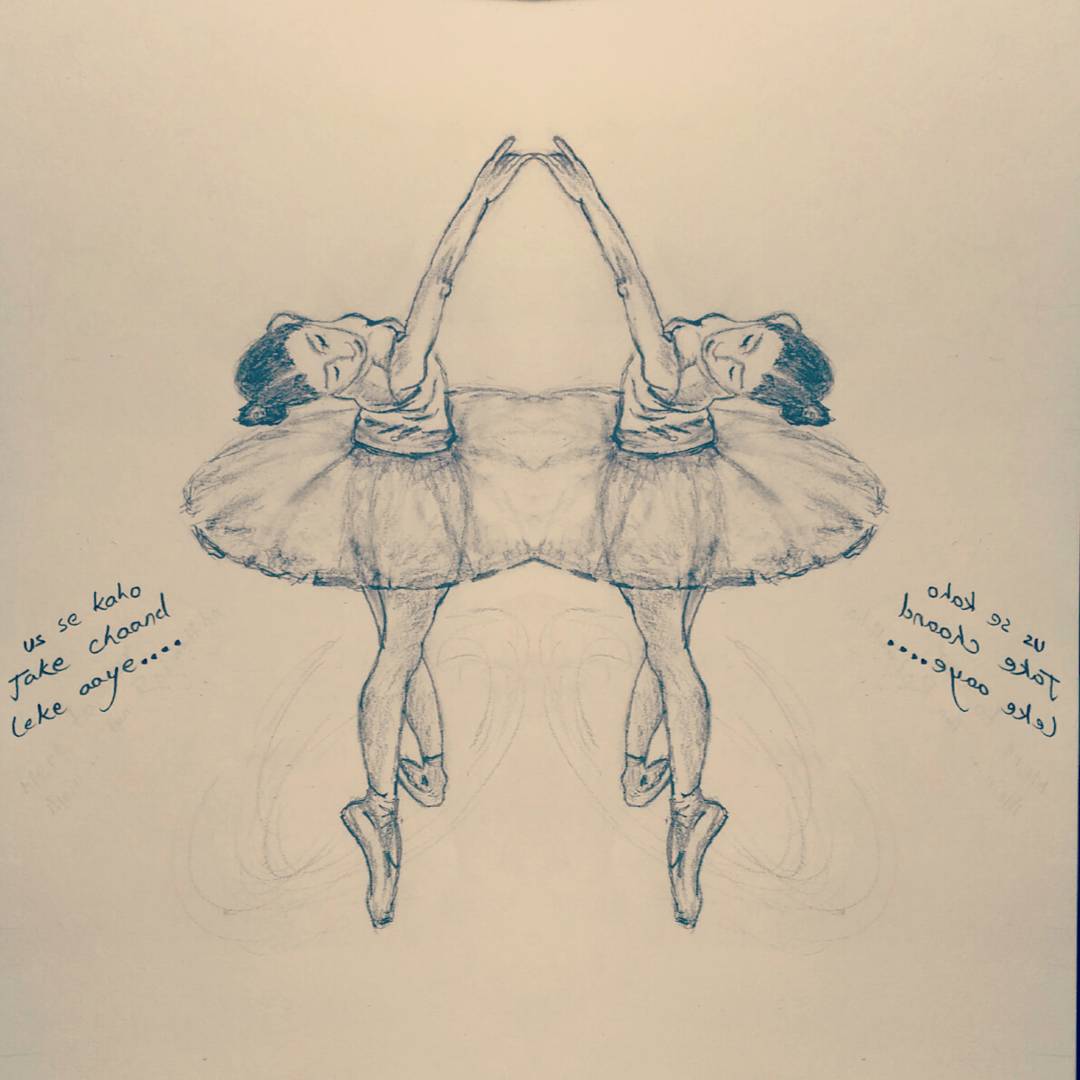 us se kaho
Jake chaand
leke aaye....
us se kaho
Jake chaand
leke aaye....